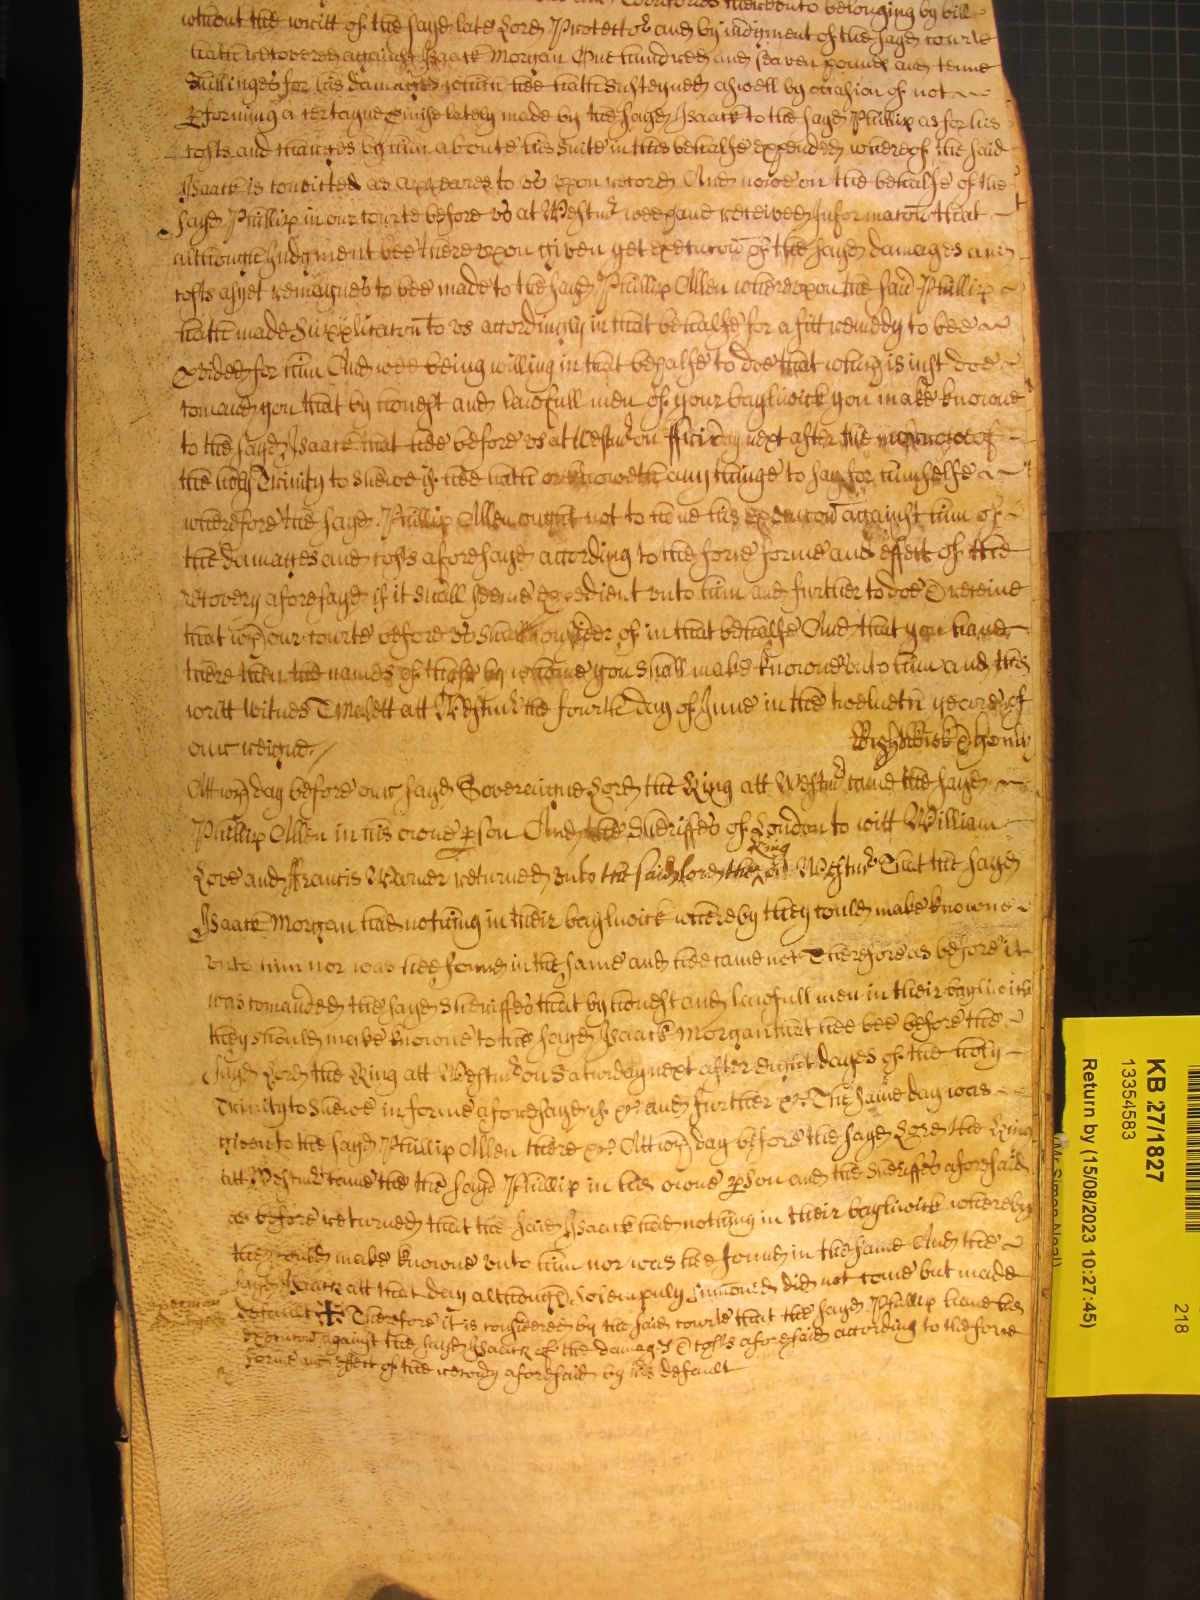 Territories thereunto belonging by bill
without the writt of the sayd late Lord Protector and by iudgment of the sayd Courte
hath recovered against Isaack Morgan One hundred and seaven pounds and tenne
shillinges for his damages which hee hath susteyned aswell by occasion of not
pforming a certayne pmise lately made by the sayd Isaack to the sayd Phillip as for his
costs and charges by him aboute his suite in this behalfe expended whereof the said
Isaack is convicted as appeares to us upon record And nowe on the behalfe of the
sayd Phillip in our Courte before us at Westmr wee have received Informacon that
although Iudgment bee thereupon given yet execucon of the sayd damages and
costs as yet remaynes to bee made to the sayd Phillip Allen whereupon the said Phillip
hath made Supplicacon to us accordingly in that behalfe for a fitt remedy to bee
pvided for him And wee being willing in that behalfe to doe that which is iust doe
comand you that by honest and lawfull men of your baylwick you make knowne
to the sayd Isaack that hee bee before us at Westmr on ffriday next after the morrowe of
the holy Trinity to shewe if hee hath or knoweth any thinge to say for himselfe
wherefore the sayd Phillip Allen ought not to have his execucon against him of
the damages and costs aforesayd according to the force forme and effect of the
recovery aforesayd if it shall seeme expedient unto him and further to doe & receive
that wch our Courte before us shall consider of in that behalfe And that you have
there then the names of those by whome you shall make knowne unto him and this
writt Witnes T Malett att Westmr the fourth day of June in the twelueth yeare of
our reigne
Att wch day before our sayd Sovereigne Lord the King att Westmr came the sayd
Phillip Allen in his owne pson And the Sheriffes of London to witt William
King
Love and ffrancis Warner returned unto the said Lord the att Westmr That the sayd
Isaack Morgan had nothing in their baylwick whereby they could make knowne
unto him nor was hee found in the same and hee came not Therefore as before it
was comanded the sayd Sheriffes that by honest and lawfull men in their baylwick
they should make knowne to the sayd Isaack Morgan that hee bee before the
sayd Lord the King att Westmr on Saturday next after eight dayes of the holy
Trinity to shewe in forme aforesayd if &c and further &c The same day was
given to the sayd Phillip Allen there &c Att wch day before the sayd Lord the King
att Westmr came the sayd Phillip in his owne pson and the Sheriffes aforesaid
as before returned that the said Isaack had nothing in their baylwick whereby
they could make knowne unto him nor was hee found in the same And the
sayd Isaack att that day although solempnly sumoned did not come but made
default Therefore it is considered by the said Courte that the sayd Phillip have his
execucon against the sayd Isaack of the damages & costs aforesaid according to the force
forme and effect of the recovery aforesaid by his default
KB 27/1827
13354583
Return by (15/08/2023 10:27:45)
Mr Simon Neal
218